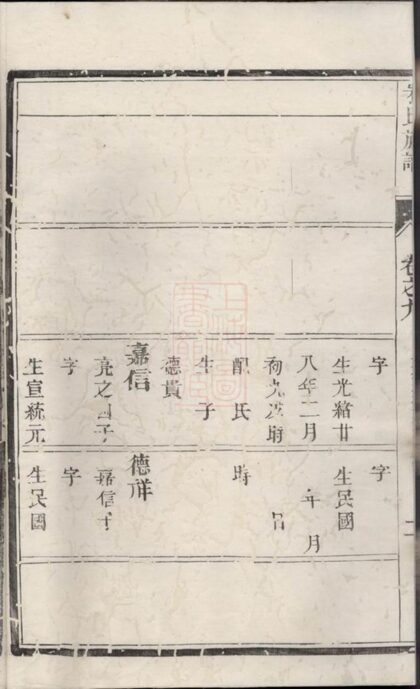 氏族譜
卷之九
字
生光緒廿
八年二月
初九 時
配 氏
生 子
德貴
嘉信
亮之四子
字
生宣統元
字
生民國
年 月
日
時
德祥
嘉信子
字
生民國
上海圖書館藏